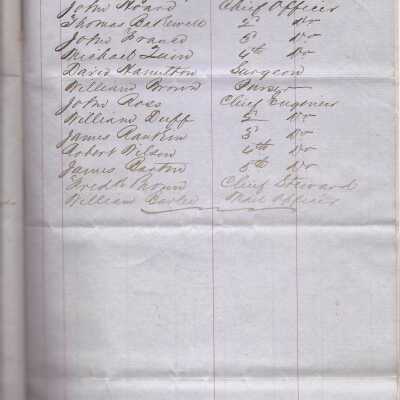 John Hoard Chief Officer
Thomas Bakewell 2d do
John France 3 do
Michael Quin 4th do
David Hamilton Surgeon
William Brown Purser
John Ross Chief Engineer
William Duff 2 do
James Rankin 3 do
Robert Wilson 4th do
James Barton 5th do
Fredk Brown Chief Steward
William Mail Officer